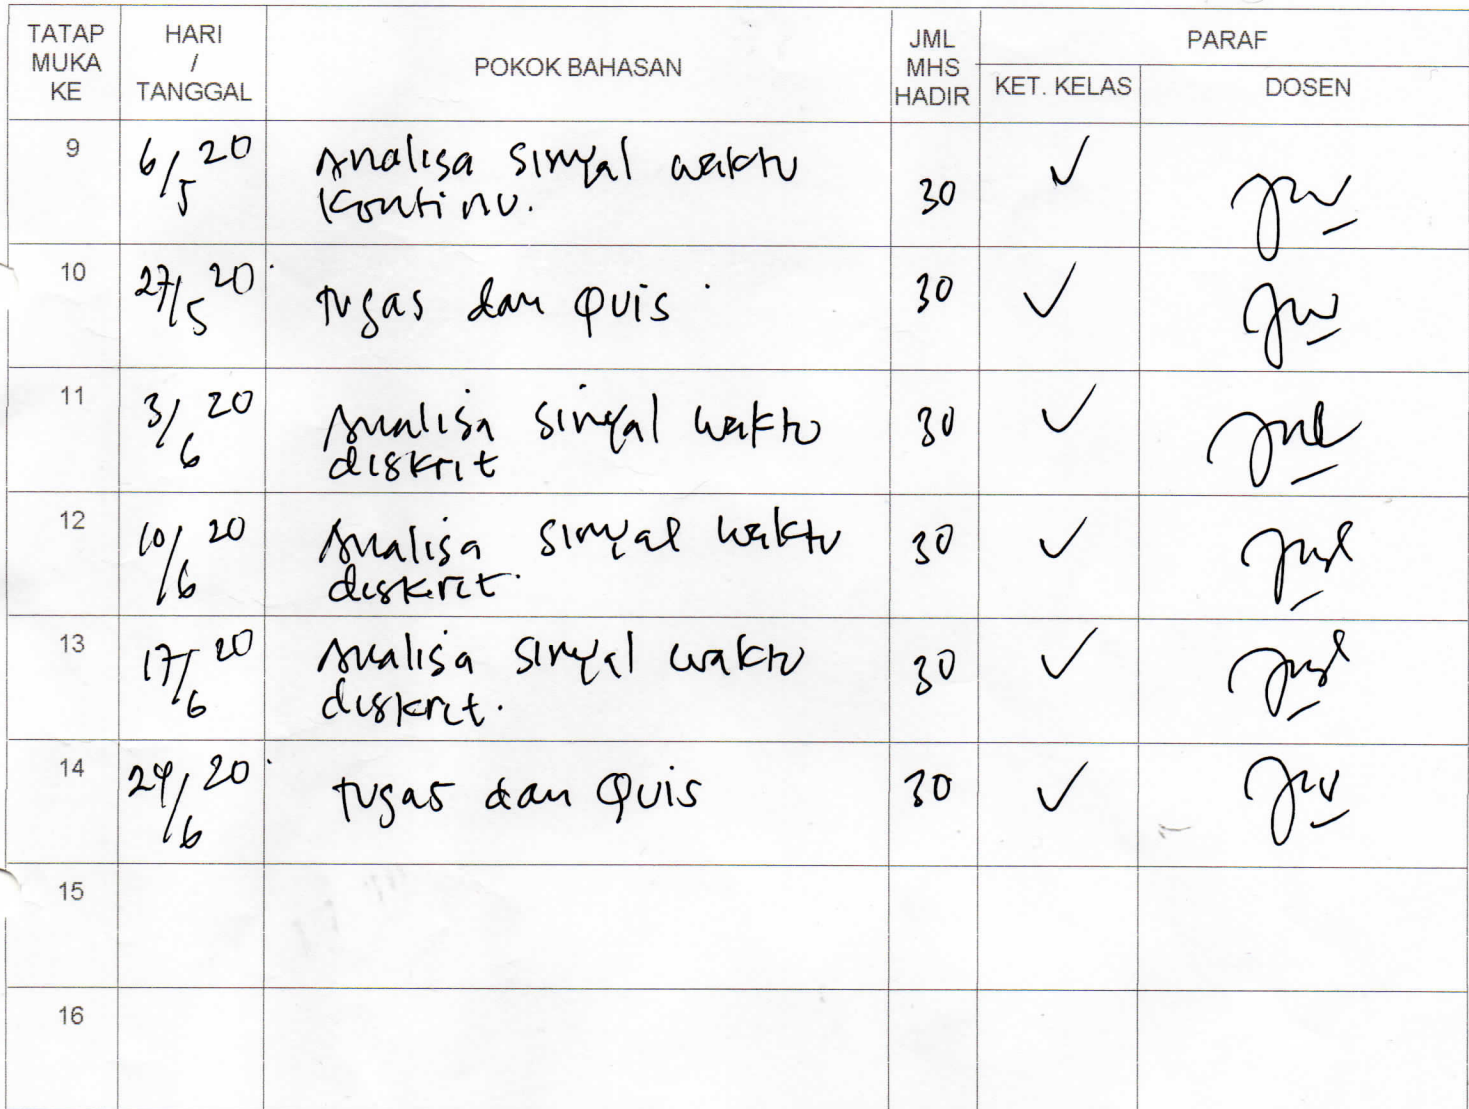 TATAP MUKA KE HARI / TANGGAL POKOK BAHASAN JML MHS HADIR PARAF
KET. KELAS DOSEN
9 6/5 20 Analisa sinyal waktu kontinu. 30 ✓
10 27/5 20 tugas dan Quis 30 ✓
11 3/6 20 Analisa sinyal waktu diskrit 30 ✓
12 10/6 20 Analisa sinyal waktu diskrit. 30 ✓
13 17/6 20 Analisa sinyal waktu diskrit. 30 ✓
14 24/6 20 tugas dan Quis 30 ✓
15
16